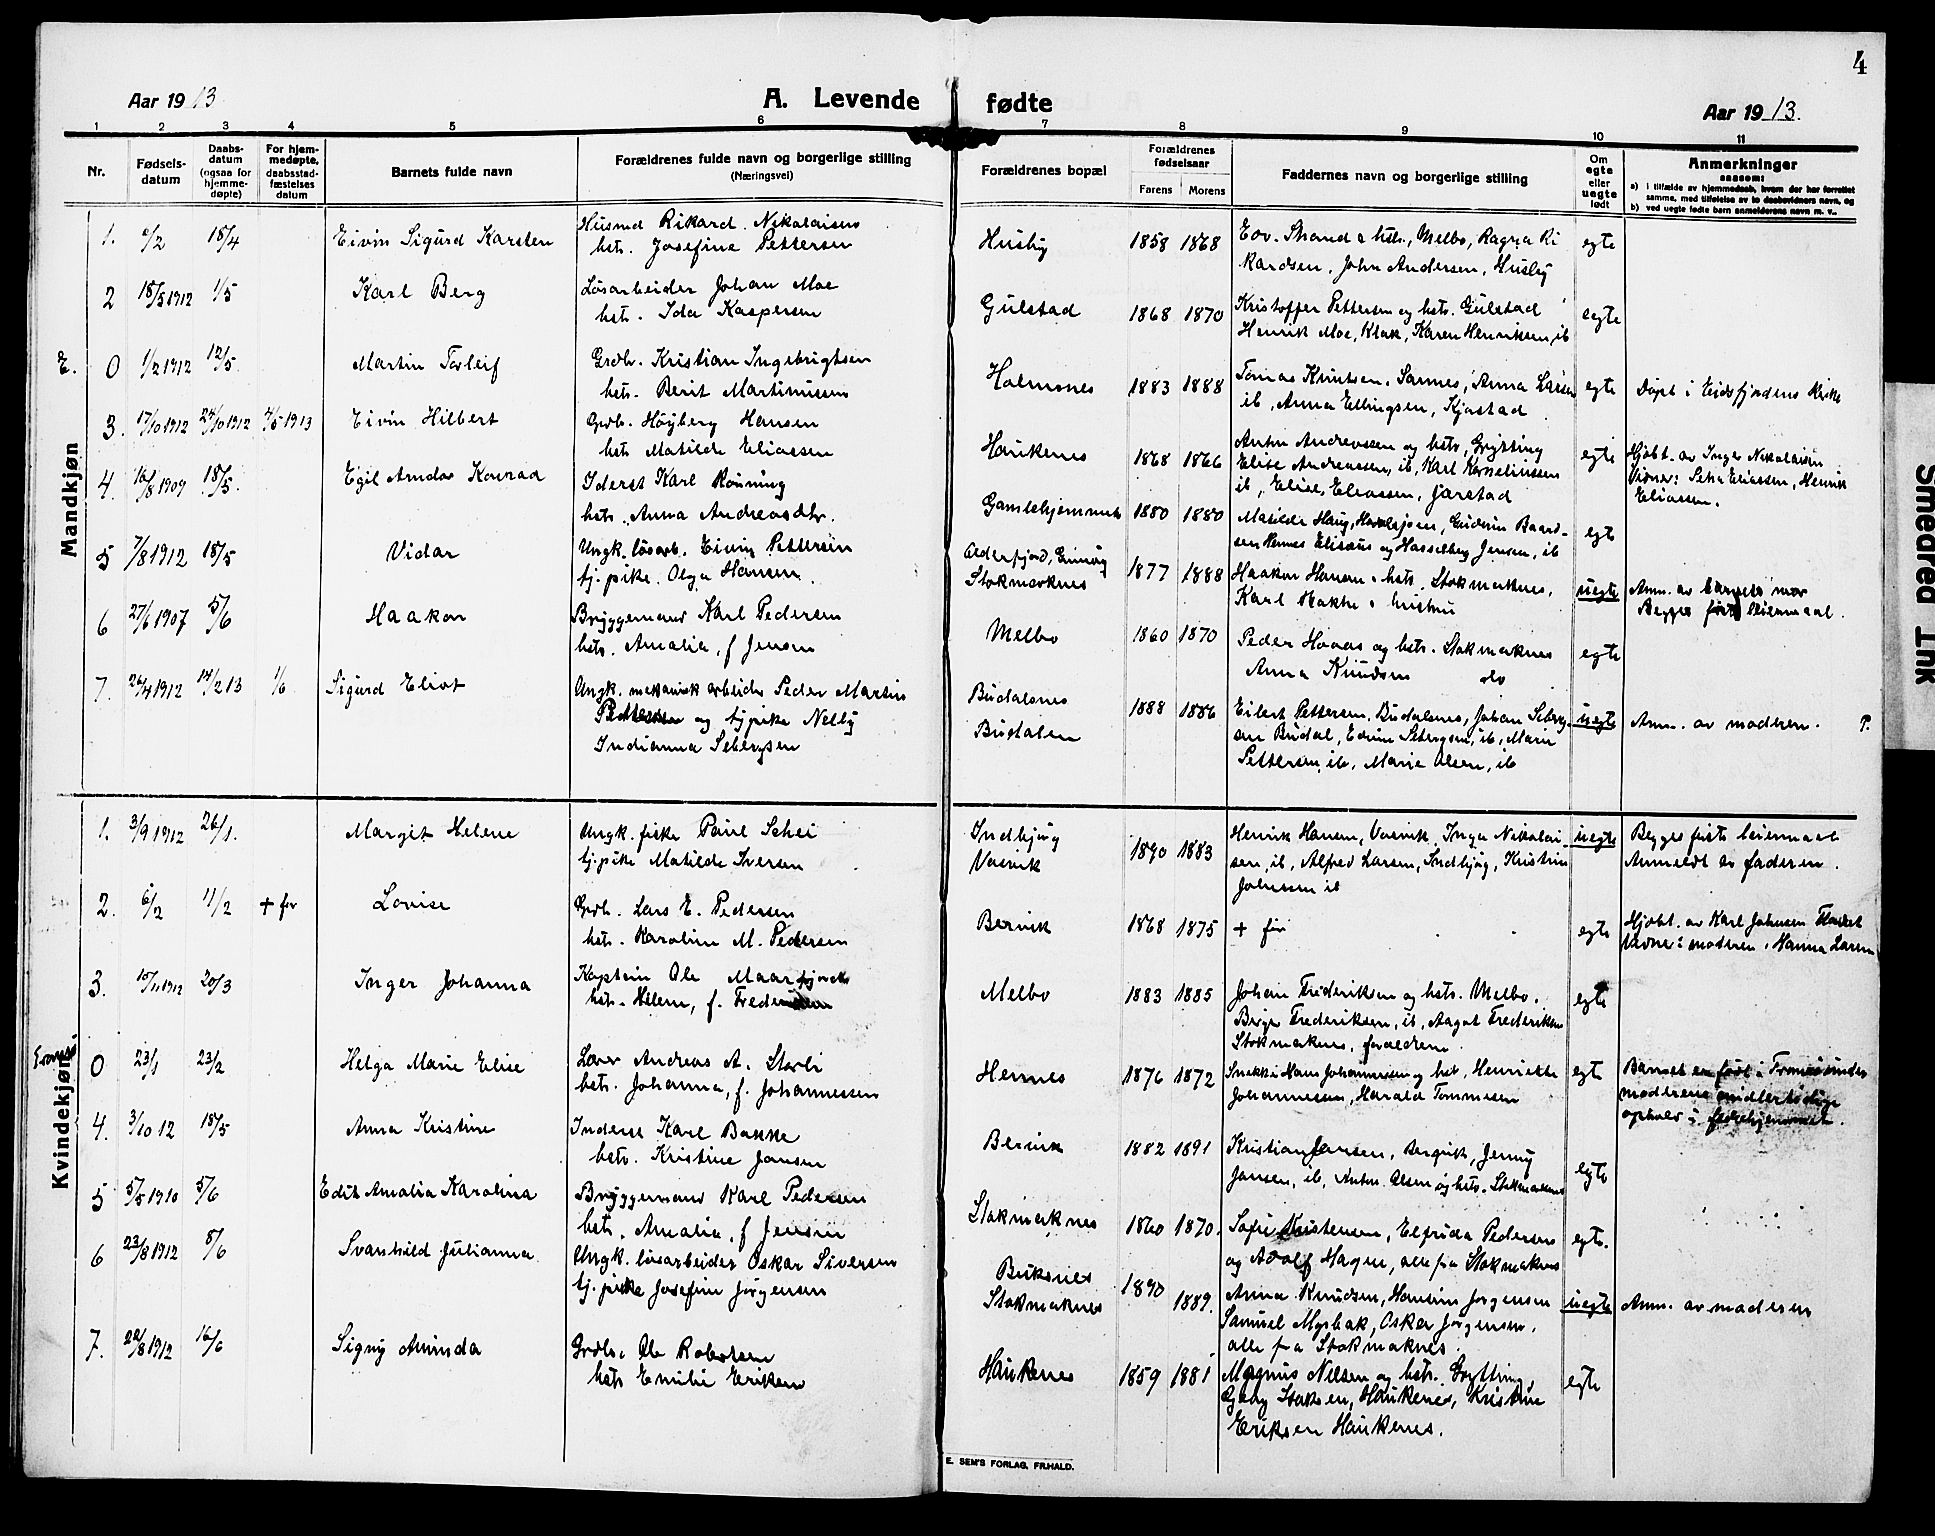 4
Aar 1913
A. Levende fødte
Aar 1913.
1 2 3 4 5 6 7 8 9 10 11
Nr.
Fødsels-
datum
Daabs-
datum
(ogsaa for
hjemme-
døpte)
For hjem-
medøpte,
daabsstad-
fæstelses
datum
Barnets fulde navn
Forældrenes fulde navn og borgerlige stilling
(Næringsvei)
Forældrenes bopæl
Forældrenes
fødselsaar
Farens Morens
Faddernes navn og borgerlige stilling
Om
egte
eller
uegte
født
Anmerkninger
saasom:
a) i tilfælde av hjemmedaab, hvem der har forrettet
samme, med tilføielse av to daabsvidners navn, og
b) ved uegte fødte børn anmelderens navn m. v..
Mandkjøn
1. 6/2 18/4 Eivin Sigurd Karsten
Husmd Rikard Nikolaisen
hstr. Josefine Pettersen
Husby 1858 1868
Eov. Strand & hstr., Melbo, Ragna Ri
kardsen, John Andersen, Husby
egte
2 18/5 1912 1/5 Karl Berg
Løsarbeider Johan Moe
hstr. Ida Kaspersen
Gulstad 1868 1870
Kristoffer Pettersen og hstr. Gulstad
Henrik Moe, Klak, Karen Henriksen, ib
egte
E. 0 1/2 1912 12/5. Martin Torleif
Grdbr. Kristian Ingebrigtsen
hstr. Berit Martinusen
Holmsnes 1883 1888
Tomas Knutsen, Sannes, Anna Larsen
ib, Anna Ellingsen, Kjørstad
egte
Døpt i Eidsfjordens kirke
3. 17/10 1912 24/10 1912 4/5 1913 Eivin Hilbert
Grdb. Høyberg Hansen
hstr Matilde Eliassen
Haukenes 1868 1866
Anton Andreassen og hstr, Grytting
Elise Andreassen, ib, Karl Korneliussen
ib, Elise Eliassen, Jørstad
egte
Hjdbt. av Inger Nikolaisen
Vidner: Petra Eliassen, Henrik
Eliassen.
4. 16/8 1909 18/5. Egil Arndor Konrad
Iderst Karl Rønning
hstr. Anna Andreasdtr.
Gamlehjemmet 1880 1880
Matilde Haug, Gudrun Baard-
sen Hennes Elisæus og Hasselberg Jensen, ib
egte
5 7/8 1912 18/5 Vidar
Ungk. løsarb. Eivin Pettersen
tj. pike. Olga Hansen.
Stokmarknes 1877 1888
Haakon Hansen & hstr. Stokmarknes,
Karl Bakke & hustru
uegte
Anm. av barnets mor
Begges første leiermaal.
6 27/6 1907 5/6 Haakon
Bryggemand Karl Pedersen
hstr. Amalia, f Jensen
Melbo 1860 1870
Peder Hovas og hstr. Stokmarknes
Anna Knudsen do
egte
7. 26/4 1912 14/2 13 1/6 Sigurd Eliot
Ungk. mekanisk arbeider Peder Martin
Pettersen og tjpike Nelly
Indianna Sebergsen
Budalsnes
Budalen
1888 1886
Eilert Pettersen, Budalsnes, Johan Seberg-
sen Budal, Edvin Sebergsen, ib, Marie
Pettersen, ib, Marie Olsen, ib
uegte
Anm. av moderen. P.
Kvindekjøn
1. 3/9 1912 26/1. Margit Helene
Ungk. fisker Paul Schei
tj. pike Matilde Iversen
Indbjørg
Vasvik
1890 1883
Henrik Hansen, Vasvik, Inga Nikolai-
sen, ib, Alfred Larsen, Indbjørg, Kristin
Johnsen ib
uegte
Begges første leiermaal
Anmeldt av faderen.
2. 6/2 11/2 + før Lovise
Grdb. Lars E. Pedersen
hstr. Karoline M. Pedersen
Bervik 1868 1875 + før egte
Hjdbt. av Karl Johnsen
Vidner: moderen, Hanna Larsen
3. 15/11 1912 20/3 Inger Johanna
Kaptein Ole Maarfjord
hstr. Helene, f. Frederiksen
Melbo 1883 1885
Johan Frederiksen og hstr. Melbo.
Berge Frederiksen, ib, Aagot Frederiksen
Stokmarknes, forældrene.
egte
0 23/1 23/2 Helga Marie Elise
Lærer Andreas A. Storli
hstr. Johanna, f. Johannessen
Hennes 1876 1872
Snekker Hans Johannessen og hstr, Henriette
Johannessen, Harald Tommesen
egte
Barnet er født i Tromsøsundet
moderens midlertidige
ophold i
4. 3/10 12 18/5 Anna Kristine
Inderst Karl Bakke
hstr. Kristine Jansen
Bervik 1882 1891
Kristian Jansen, Bervik, Jenny
Jansen, ib, Anton Olsen og hstr. Stokmarknes
egte
5 5/5 1910 5/6 Edit Amalia Karolina
Bryggemand Karl Pedersen
hstr. Amalia, f Jensen
Stokmarknes 1860 1870.
Sofie Kristensen, Elfrida Pedersen
og Adolf Hagen, alle fra Stokmarknes
egte.
6 23/8 1912 8/6 Svanhild Julianna
Ungk. løsarbeider Oskar Siversen
tj. pike Josefine Jørgensen
Buksnes
Stokmarknes
1890 1889.
Anna Knudsen, Hansine Jørgensen
Samuel Myrbak, Oskar Jørgensen.
alle fra Stokmarknes.
uegte
Anm. av moderen
7. 22/8 1912 16/6 Signy Aminda
Grdbr. Ole Robertsen
hstr Emilie Eriksen
Haukenes 1859 1881
Magnus Nilsen og hstr. Grytting,
Haukenes, Kristine
Eriksen Haukenes.
egte
E. SEM'S FORLAG, FR.HALD.
Smedred Ink